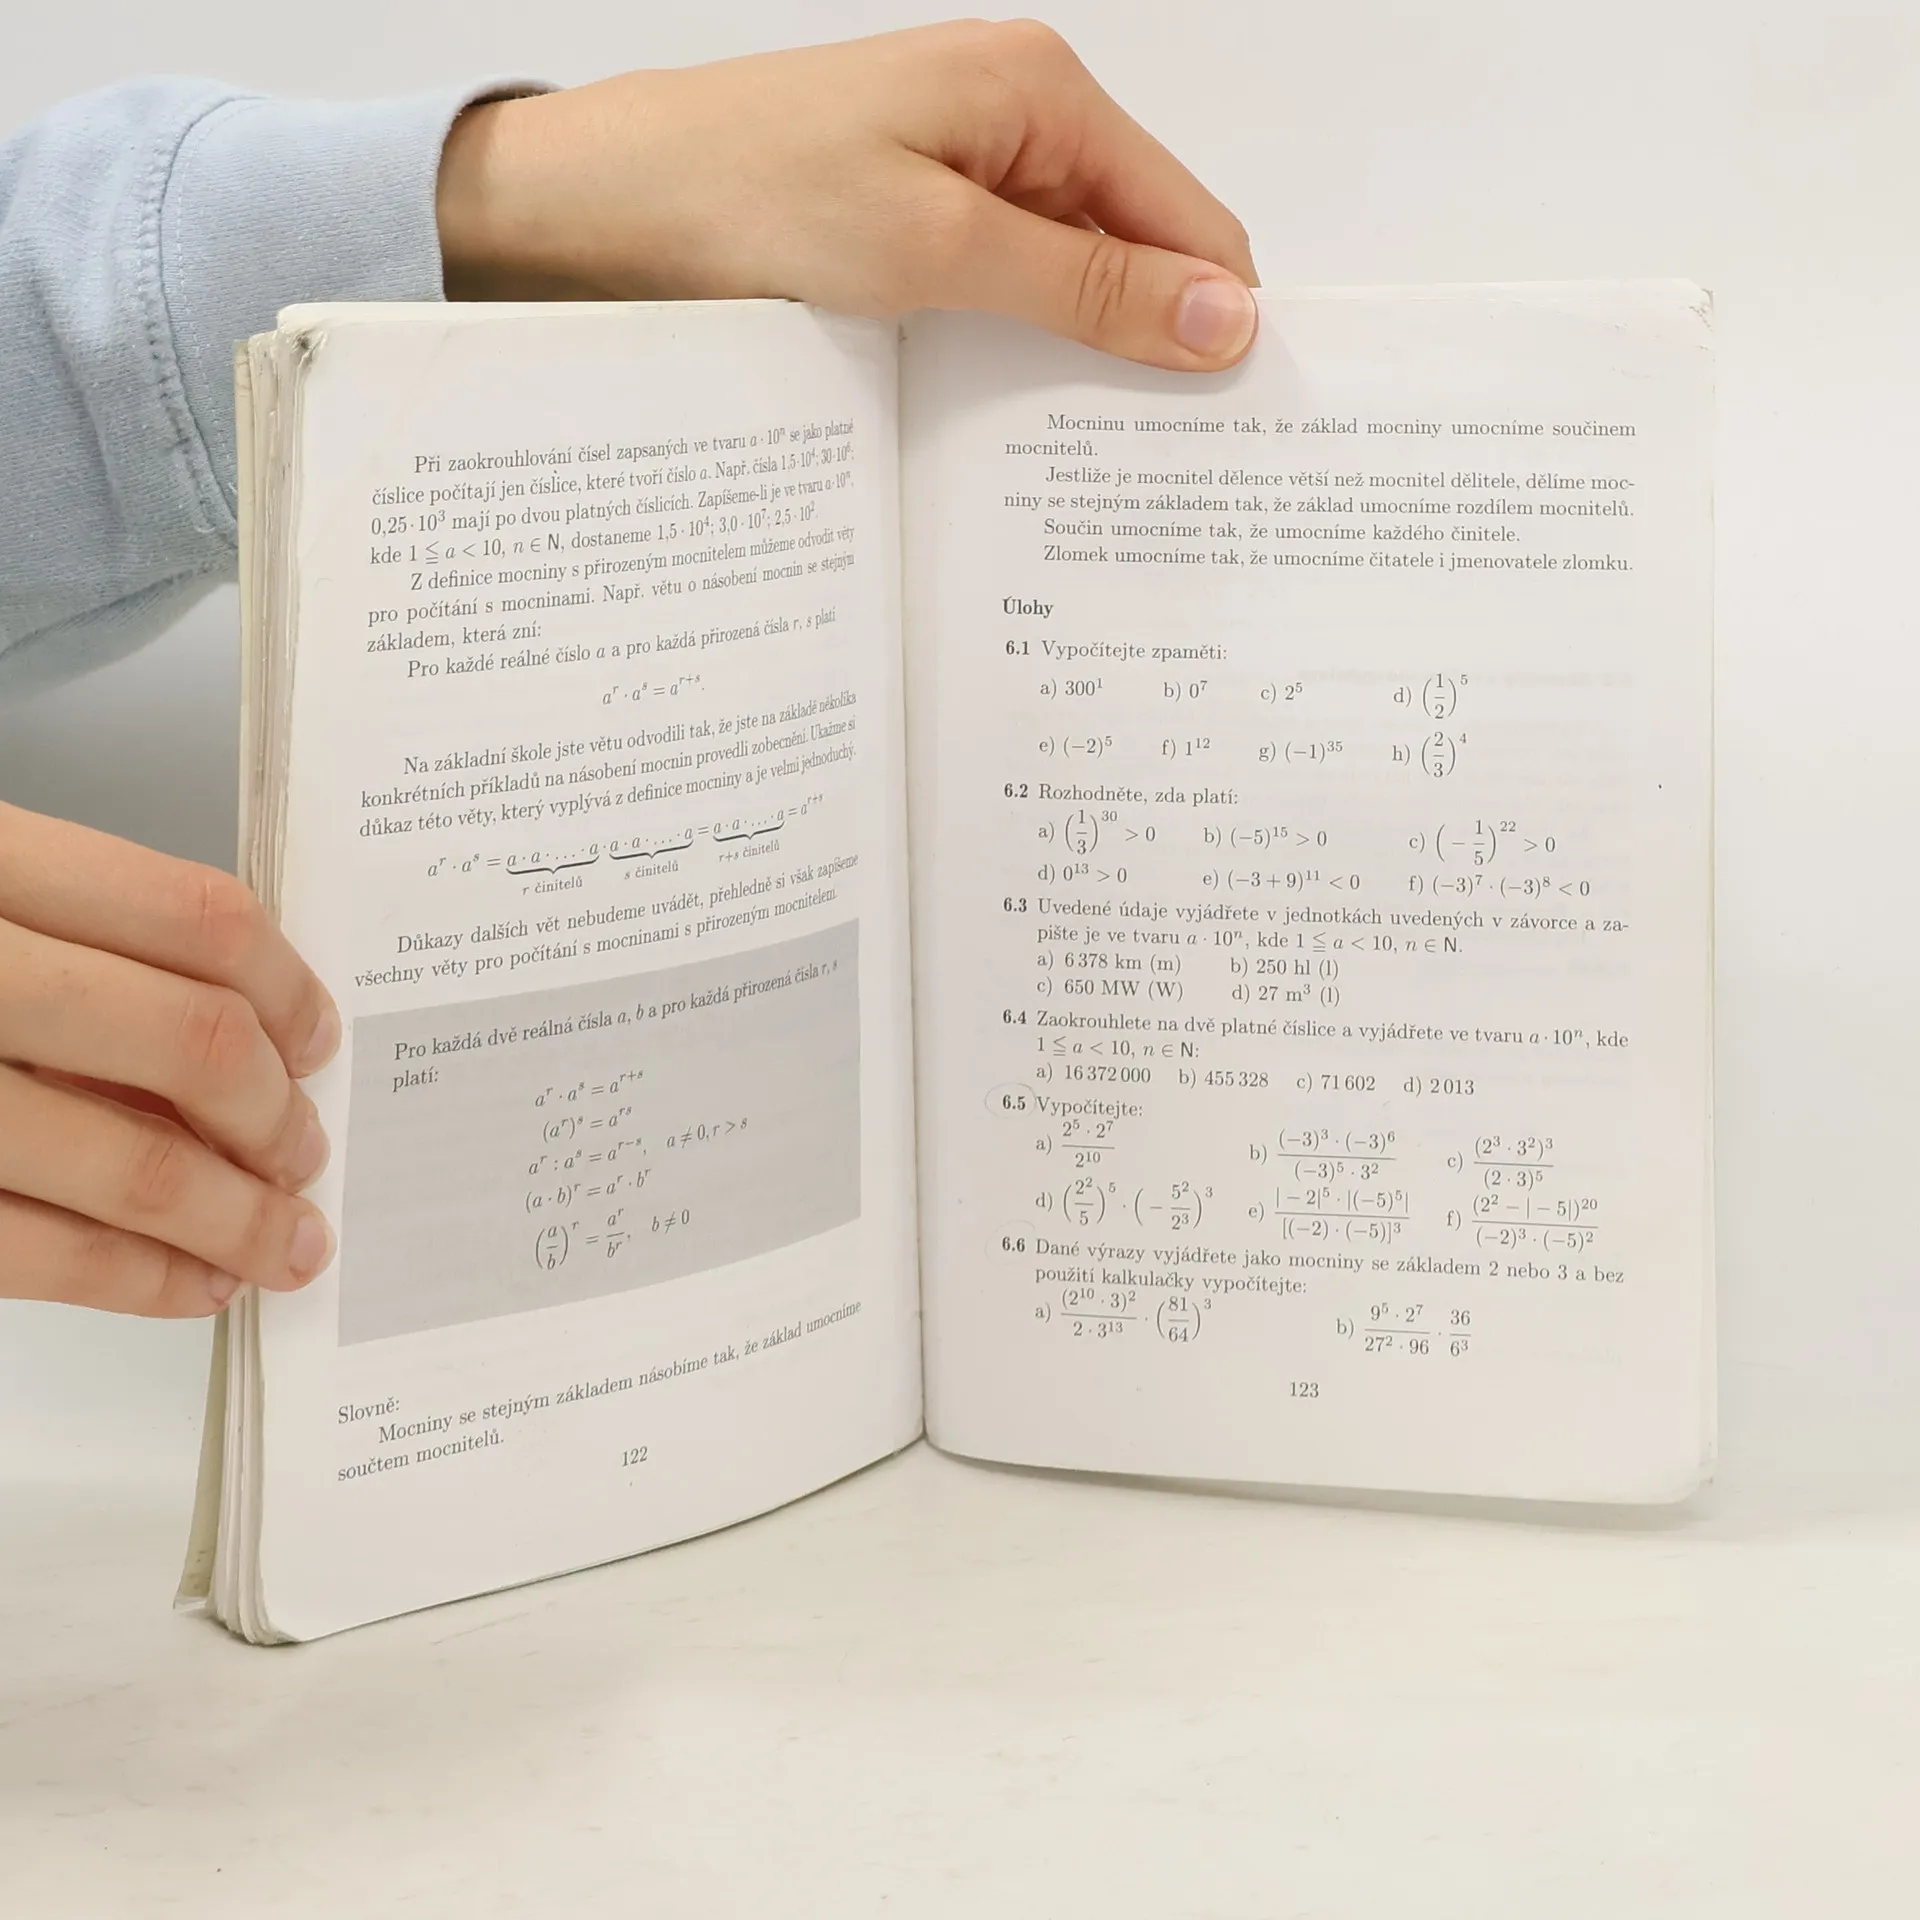 Při zaokrouhlování čísel zapsaných ve tvaru a · 10ⁿ se jako platné
číslice počítají jen číslice, které tvoří číslo a. Např. čísla 1,5·10⁴; 30·10⁶;
0,25 · 10³ mají po dvou platných číslicích. Zapíšeme-li je ve tvaru a·10ⁿ,
kde 1 ≦ a < 10, n ∈ N, dostaneme 1,5 · 10⁴; 3,0 · 10⁷; 2,5 · 10².
Z definice mocniny s přirozeným mocnitelem můžeme odvodit věty
pro počítání s mocninami. Např. větu o násobení mocnin se stejným
základem, která zní:
Pro každé reálné číslo a a pro každá přirozená čísla r, s platí
aʳ · aˢ = aʳ⁺ˢ.
Na základní škole jste větu odvodili tak, že jste na základě několika
konkrétních příkladů na násobení mocnin provedli zobecnění. Ukažme si
důkaz této věty, který vyplývá z definice mocniny a je velmi jednoduchý.
aʳ · aˢ = a · a · … · a · a · a · … · a = a · a · … · a = aʳ⁺ˢ
r činitelů s činitelů r+s činitelů
Důkazy dalších vět nebudeme uvádět, přehledně si však zapíšeme
všechny věty pro počítání s mocninami s přirozeným mocnitelem.
Pro každá dvě reálná čísla a, b a pro každá přirozená čísla r, s
platí:
aʳ · aˢ = aʳ⁺ˢ
(aʳ)ˢ = aʳˢ
aʳ : aˢ = aʳ⁻ˢ, a ≠ 0, r > s
(a · b)ʳ = aʳ · bʳ
(a/b)ʳ = aʳ/bʳ, b ≠ 0
Slovně:
Mocniny se stejným základem násobíme tak, že základ umocníme
součtem mocnitelů.
122
Mocninu umocníme tak, že základ mocniny umocníme součinem
mocnitelů.
Jestliže je mocnitel dělence větší než mocnitel dělitele, dělíme moc-
niny se stejným základem tak, že základ umocníme rozdílem mocnitelů.
Součin umocníme tak, že umocníme každého činitele.
Zlomek umocníme tak, že umocníme čitatele i jmenovatele zlomku.
Úlohy
6.1 Vypočítejte zpaměti:
a) 300¹ b) 0⁷ c) 2⁵ d) (1/2)⁵
e) (−2)⁵ f) 1¹² g) (−1)³⁵ h) (2/3)⁴
6.2 Rozhodněte, zda platí:
a) (1/3)³⁰ > 0 b) (−5)¹⁵ > 0 c) (−1/5)²² > 0
d) 0¹³ > 0 e) (−3 + 9)¹¹ < 0 f) (−3)⁷ · (−3)⁸ < 0
6.3 Uvedené údaje vyjádřete v jednotkách uvedených v závorce a za-
pište je ve tvaru a · 10ⁿ, kde 1 ≦ a < 10, n ∈ N.
a) 6 378 km (m) b) 250 hl (l)
c) 650 MW (W) d) 27 m³ (l)
6.4 Zaokrouhlete na dvě platné číslice a vyjádřete ve tvaru a · 10ⁿ, kde
1 ≦ a < 10, n ∈ N:
a) 16 372 000 b) 455 328 c) 71 602 d) 2 013
6.5 Vypočítejte:
a) (2⁵ · 2⁷)/2¹⁰ b) ((−3)³ · (−3)⁶)/((−3)⁵ · 3²) c) (2³ · 3²)³/(2 · 3)⁵
d) (2²/5)⁵ · (−5²/2³)³ e) (|−2|⁵ · |(−5)⁵|)/[(−2) · (−5)]³ f) (2² − |−5|)²⁰/((−2)³ · (−5)²)
6.6 Dané výrazy vyjádřete jako mocniny se základem 2 nebo 3 a bez
použití kalkulačky vypočítejte:
a) (2¹⁰ · 3)²/(2 · 3¹³) · (81/64)³ b) (9⁵ · 2⁷)/(27² · 96) · 36/6³
123